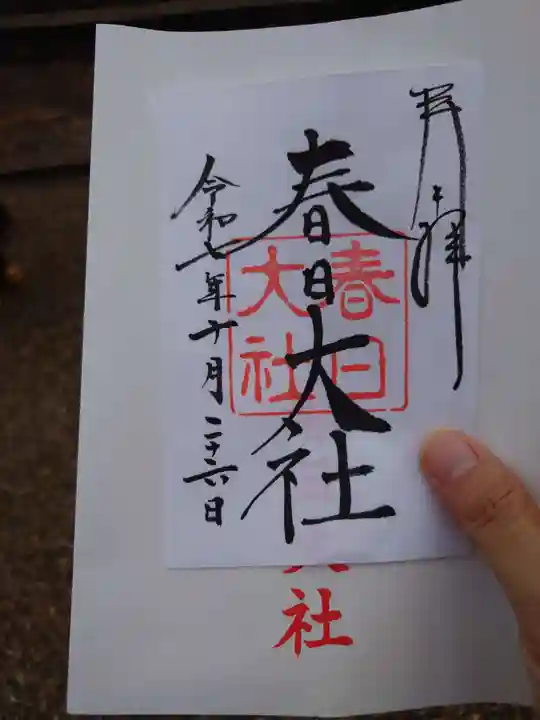 奉拝
春日大社
令和七年十月二十六日
春日
大社
大社